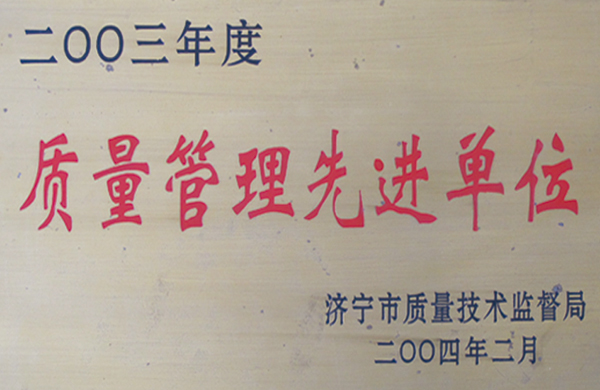 二〇〇三年度
质量管理先进单位
济宁市质量技术监督局
二〇〇四年二月